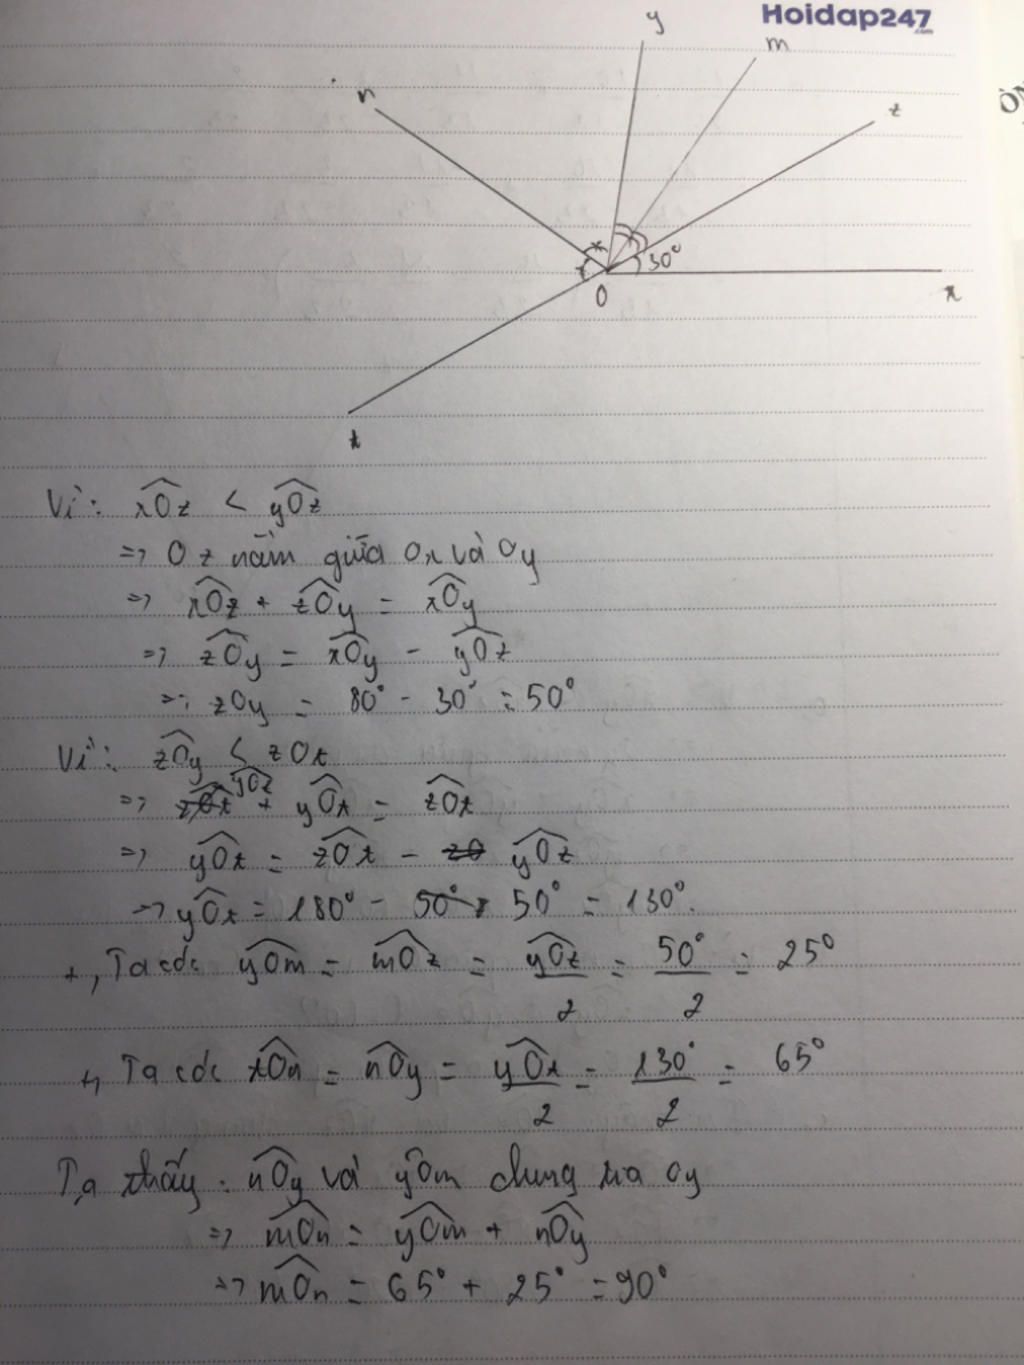 Hoidap247
.com
y
m
n
z
30°
O
x
t
Vì: xOz < yOz
=> Oz nằm giữa Ox và Oy
=> xOz + zOy = xOy
=> zOy = xOy - yOz
=> zOy = 80° - 30° = 50°
Vì: zOy < zOt
=> yOz + yOt = zOt
=> yOt = zOt - yOz
=> yOt = 180° - 50° = 130°.
+, Ta có: yOm = mOz = yOz/2 = 50°/2 = 25°
+, Ta có: tOn = nOy = yOt/2 = 130°/2 = 65°
Ta thấy: nOy và yOm chung tia Oy
=> mOn = yOm + nOy
=> mOn = 65° + 25° = 90°